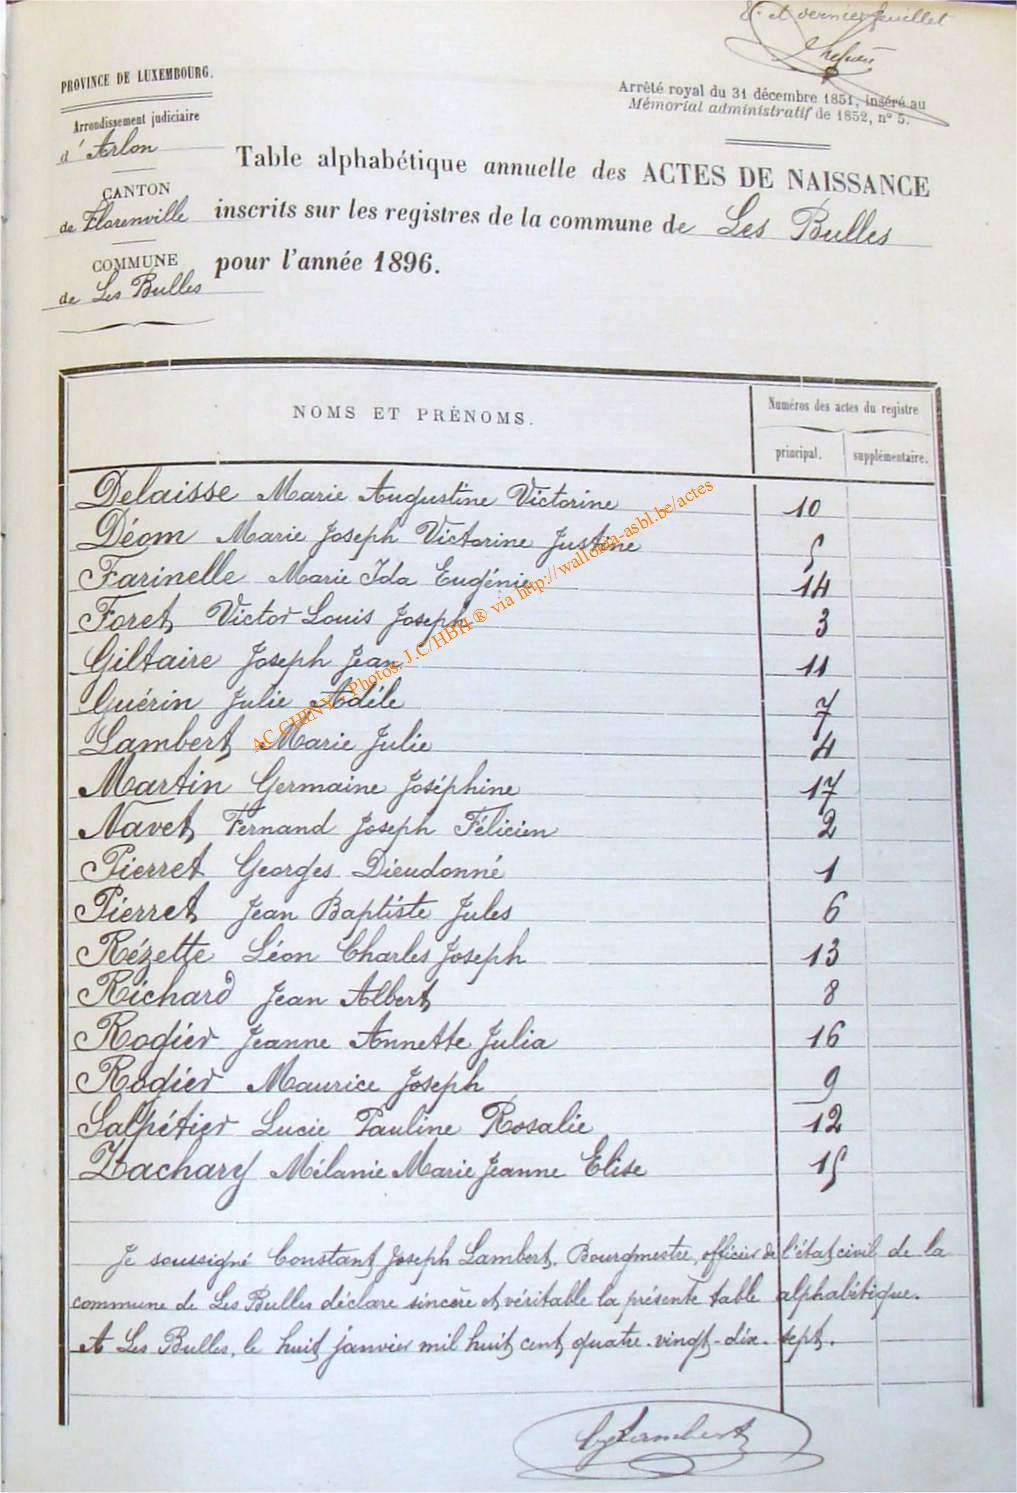 8e et dernier feuillet
PROVINCE DE LUXEMBOURG.
Arrêté royal du 31 décembre 1851, inséré au
Mémorial administratif de 1852, n° 5.
Arrondissement judiciaire
d'Arlon
CANTON
de Florenville
COMMUNE
de Les Bulles
Table alphabétique annuelle des ACTES DE NAISSANCE
inscrits sur les registres de la commune de Les Bulles
pour l'année 1896.
NOMS ET PRÉNOMS.
Numéros des actes du registre
principal. supplémentaire.
Delaisse Marie Augustine Victorine 10
Déom Marie Joseph Victorine Justine 5
Farinelle Marie Ida Eugénie 14
Foret Victor Louis Joseph 3
Giltaire Joseph Jean 11
Guérin Julie Adéle 7
Lambert Marie Julie 4
Martin Germaine Joséphine 17
Navet Fernand Joseph Félicien 2
Pierret Georges Dieudonné 1
Pierret Jean Baptiste Jules 6
Rézette Léon Charles Joseph 13
Richard Jean Albert 8
Rodier Jeanne Annette Julia 16
Rodier Maurice Joseph 9
Salpétier Lucie Pauline Rosalie 12
Zachary Mélanie Marie Jeanne Elise 15
Je soussigné Constant Joseph Lambert, Bourgmestre, officier de l'état civil de la
commune de Les Bulles déclare sincère et véritable la présente table alphabétique.
A Les Bulles, le huit janvier mil huit cent quatre-vingt-dix-sept.
CJLambert
AC CHINY - Photos. J.C/HBH ® via http://wallonia-asbl.be/actes